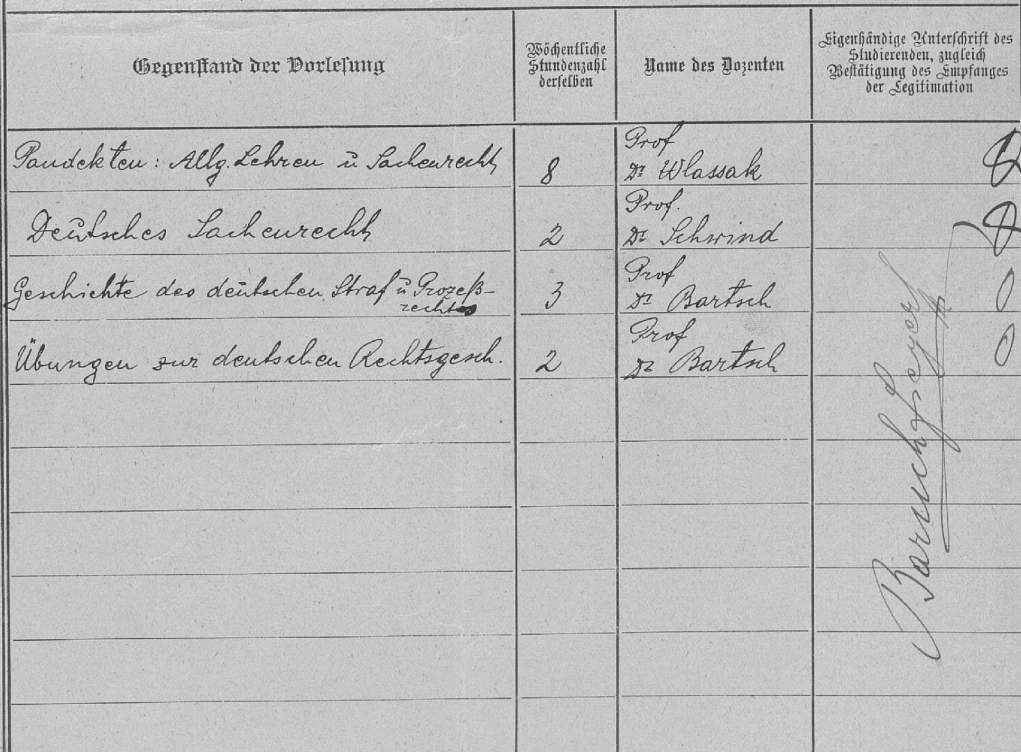 Gegenstand der Vorlesung
Wöchentliche
Stundenzahl
derselben
Name des Dozenten
Eigenhändige Unterschrift des
Studierenden, zugleich
Bestätigung des Empfanges
der Legitimation
Pandekten: Allg. Lehren u Sachenrecht
8
Prof
Dr Wlassak
Deutsches Sachenrecht
2
Prof.
Dr Schwind
Geschichte des deutschen Straf u Prozeß-
rechtes
3
Prof
Dr Bartsch
Übungen zur deutschen Rechtsgesch.
2
Prof
Dr Bartsch
Baruch